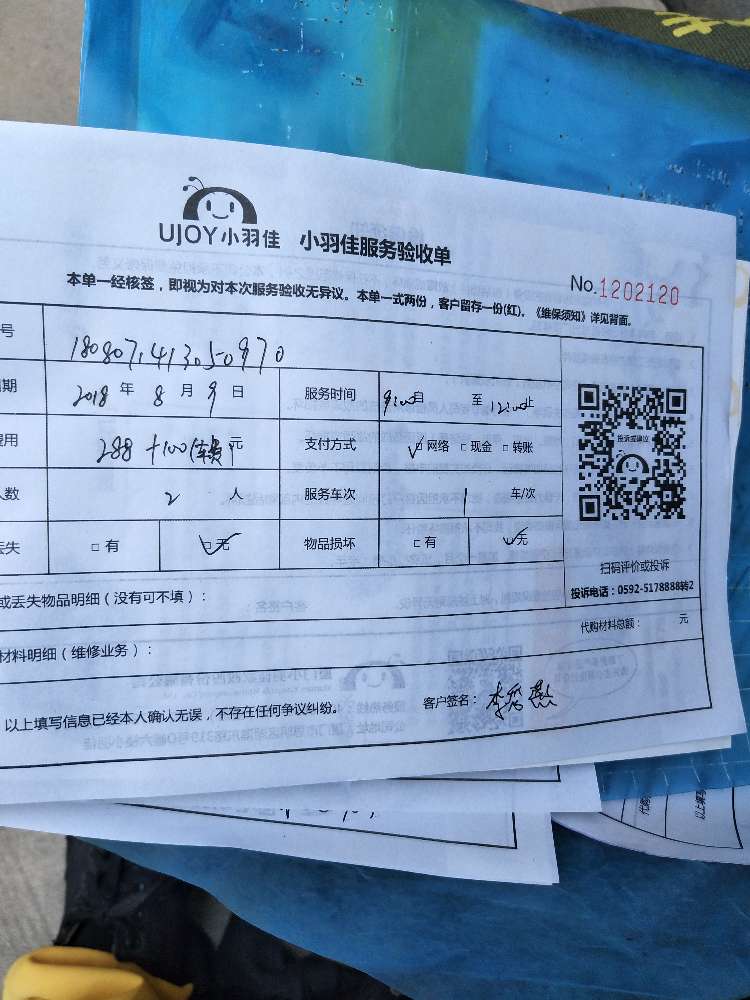 UJOY小羽佳 小羽佳服务验收单
No.1202120
本单一经核签，即视为对本次服务验收无异议。本单一式两份，客户留存一份(红)。《维保须知》详见背面。
号 1808071413050970
期 2018 年 8 月 9 日 服务时间 9:00自 至 12:00止
费用 288 +100(车费) 元 支付方式 ☑网络 □现金 □转账
人数 2 人 服务车次 1 车/次
丢失 □有 ☑无 物品损坏 □有 ☑无
投诉或建议
扫码评价或投诉
投诉电话：0592-5178888转2
或丢失物品明细（没有可不填）：
代购材料总额： 元
材料明细（维修业务）：
以上填写信息已经本人确认无误，不存在任何争议纠纷。
客户签名：